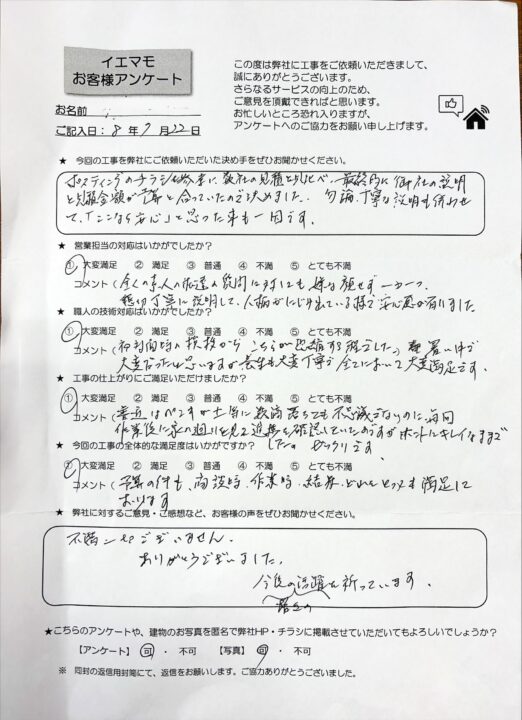 イエマモ
お客様アンケート
この度は弊社に工事をご依頼いただきまして、
誠にありがとうございます。
さらなるサービスの向上のため、
ご意見を頂戴できればと思います。
お忙しいところ恐れ入りますが、
アンケートへのご協力をお願い申し上げます。
お名前
ご記入日：8年7月22日
★ 今回の工事を弊社にご依頼いただいた決め手をぜひお聞かせください。
ポスティングのチラシを参考に、数社の見積を見比べ、最終的に御社の説明
と見積金額が予算と合っていたので決めました。勿論、丁寧な説明も併わせ
て、「ここなら安心」と思った事も一因です。
★ 営業担当の対応はいかがでしたか？
① 大変満足 ② 満足 ③ 普通 ④ 不満 ⑤ とても不満
コメント（全くの素人の私達の質問に対しても嫌な顔せず一つ一つ、
懇切丁寧に説明して、人柄がにじみ出ている様で安心感が有りました
★ 職人の技術対応はいかがでしたか？
① 大変満足 ② 満足 ③ 普通 ④ 不満 ⑤ とても不満
コメント（初対面時の挨拶からこちらが恐縮する程でした。暑い中で
大変だったと思いますが作業も大変丁寧で全てにおいて大変満足です。
★ 工事の仕上がりにご満足いただけましたか？
① 大変満足 ② 満足 ③ 普通 ④ 不満 ⑤ とても不満
コメント（はペンキが土等に数滴落ちても不思議でないのに、毎回
作業後に家の廻りを見て進捗を確認していたのですがホントにキレイなままで
した。ビックリです。
★ 今回の工事の全体的な満足度はいかがですか？
① 大変満足 ② 満足 ③ 普通 ④ 不満 ⑤ とても不満
コメント（予算の件も、商談時、作業時、結果、どれをとっても満足して
おります
★ 弊社に対するご意見・ご感想など、お客様の声をぜひお聞かせください。
不満一つございません。
ありがとうございました。
今後の活躍を祈っています。
★こちらのアンケートや、建物のお写真を匿名で弊社HP・チラシに掲載させていただいてもよろしいでしょうか？
【アンケート】 可 ・ 不可 【写真】 可 ・ 不可
※ 同封の返信用封筒にて、返信をお願いします。ご協力ありがとうございました。